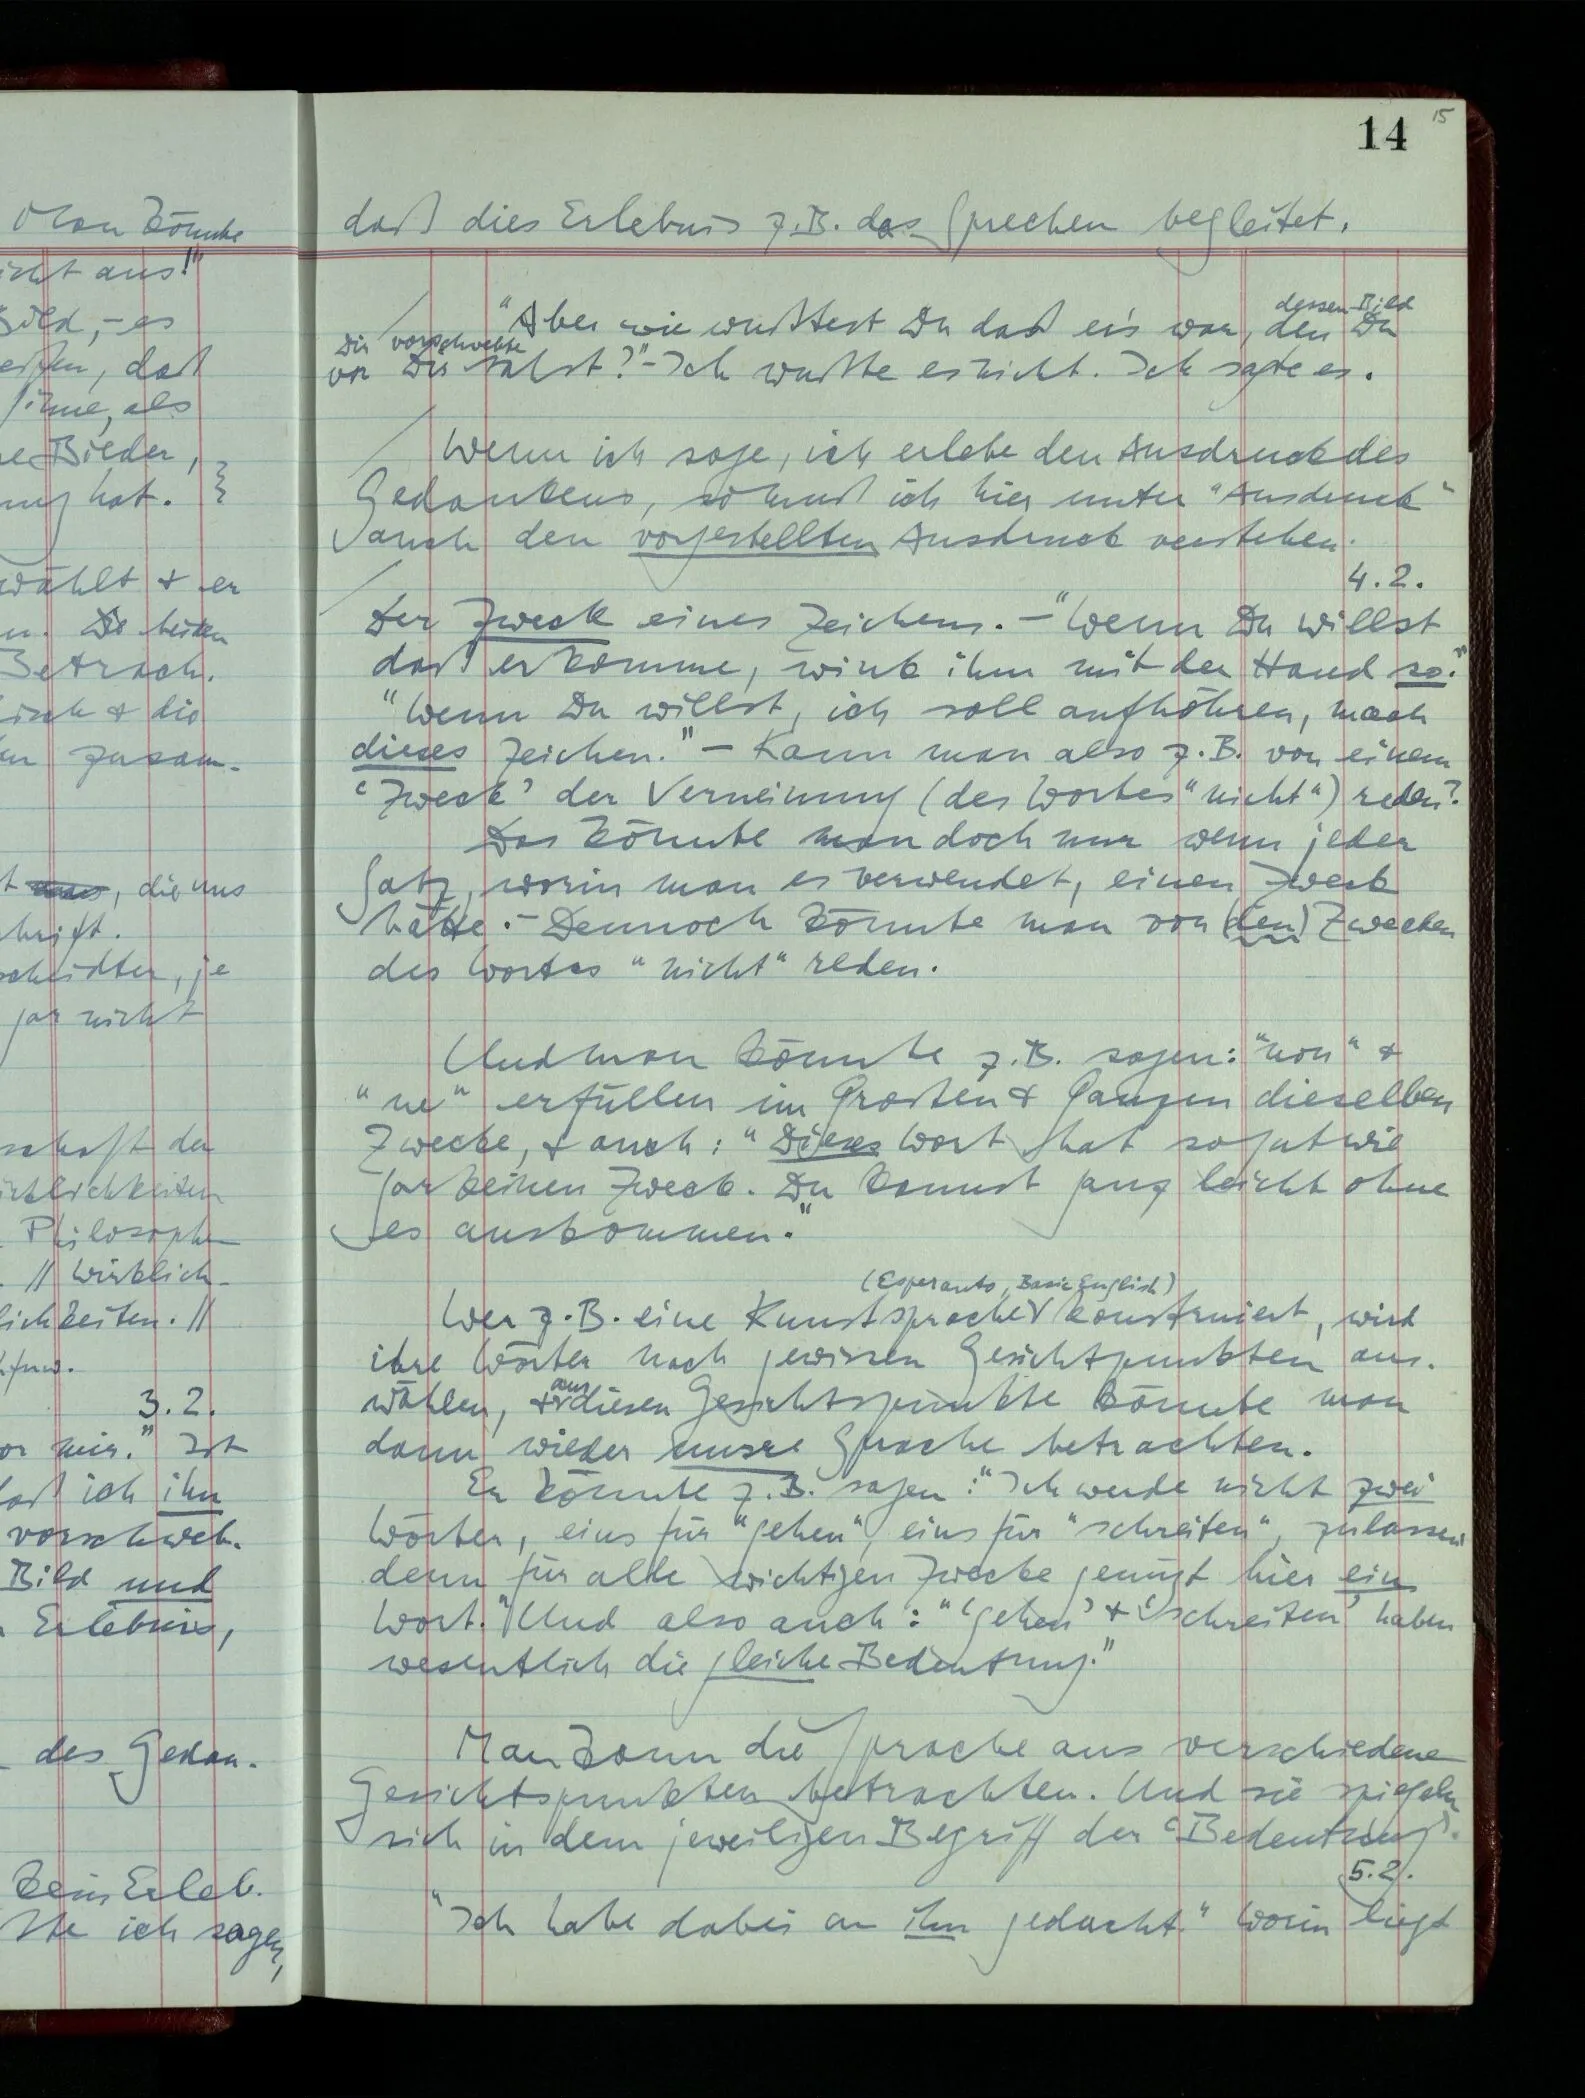 Man könnte
nicht aus!"
Bild, – es
, daß
, als
Bilder,
hat.
wählt & er
n. Die beiden
Betrach-
isch & die
zusam-
, die uns
schrift.
, je
gar nicht
schaft der
Philosophen
// Wirklich-
lichkeiten. //
usw.
3.2.
vor mir." Ist
daß ich ihn
vorschweb-
Bild und
Erlebnis,
des Gedan-
kein Erleb-
ich sagen,
14
15
daß dies Erlebnis z.B. das Sprechen begleitet.
dessen Bild
"Aber wie wußtest Du daß er's war, den Du
Dir vorschwebte
vor Dir sahst?" – Ich wußte es nicht. Ich sagte es.
Wenn ich sage, ich erlebe den Ausdruck des
Gedankens, so muß ich hier unter "Ausdruck"
auch den vorgestellten Ausdruck verstehen.
4.2.
Der Zweck eines Zeichens. – "Wenn Du willst
daß er komme, wink ihm mit der Hand so."
"Wenn Du willst, ich soll aufhöhren, mach
dieses Zeichen." – Kann man also z.B. von einem
'Zweck' der Verneinung (des Wortes "nicht") reden?
Das könnte man doch nur wenn jeder
Satz, worin man es verwendet, einen Zweck
hätte. – Dennoch könnte man von (den) Zwecken
des Wortes "nicht" reden.
Und man könnte z.B. sagen: "non" &
"ne" erfüllen im Großen & Ganzen dieselben
Zwecke, & auch: "Dieses Wort hat so gut wie
gar keinen Zweck. Du kannst ganz leicht ohne
es auskommen."
(Esperanto, Basic English)
Wer z.B. eine Kunstsprache konstruiert, wird
ihre Wörter nach gewissen Gesichtspunkten aus-
aus
wählen, & diesen Gesichtspunkte könnte man
dann wieder unsre Sprache betrachten.
Er könnte z.B. sagen: "Ich werde nicht zwei
Wörter, eins für "gehen", eins für "schreiten", zulassen
denn für alle wichtigen Zwecke genügt hier ein
Wort." Und also auch: "'gehen' & 'schreiten' haben
wesentlich die gleiche Bedeutung."
Man kann die Sprache aus verschiedenen
Gesichtspunkten betrachten. Und sie spiegeln
sich in dem jeweiligen Begriff der 'Bedeutung'.
5.2.
"Ich habe dabei an ihn gedacht." Worin liegt